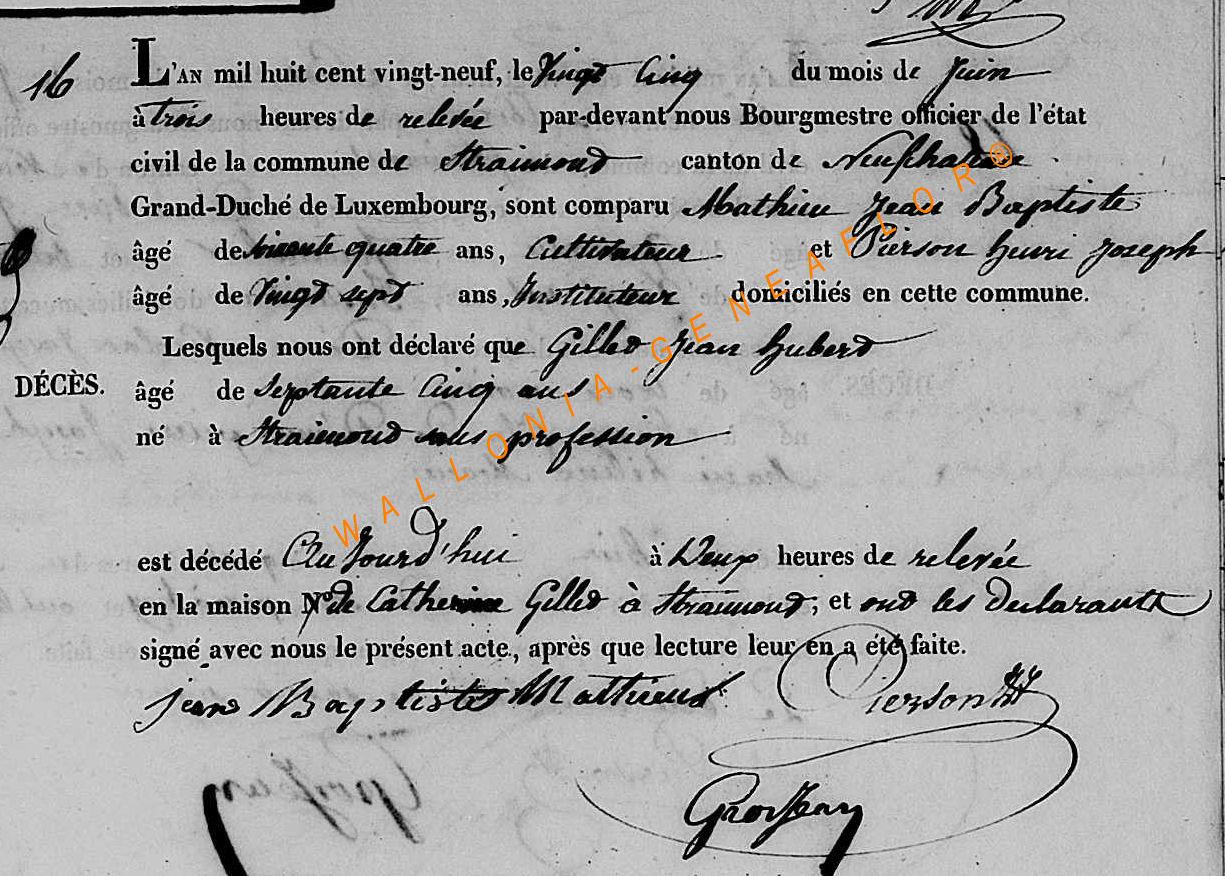 16
L'AN mil huit cent vingt-neuf, le Vingt Cinq du mois de Juin
à trois heures de relevée par-devant nous Bourgmestre officier de l'état
civil de la commune de Straimont canton de Neufchateau
Grand-Duché de Luxembourg, sont comparu Mathieu Jean Baptiste
âgé de soixante quatre ans, Cultivateur et Pierson Henri Joseph
âgé de Vingt sept ans, Instituteur domiciliés en cette commune.
Lesquels nous ont déclaré que Gillet Jean Hubert
DÉCÈS. âgé de Septante Cinq ans
né à Straimont sans profession
est décédé Aujourd'hui à Deux heures de relevée
en la maison de Catherine Gillet à Straimont, et ont les declarants
signé avec nous le présent acte, après que lecture leur en a été faite.
Jean Baptiste Mathieu Pierson HJ
Grosjean
WALLONIA-GENEAFLOR®